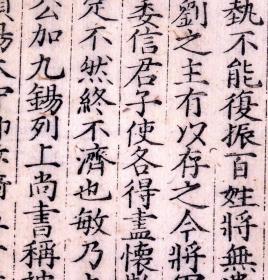 執不能復振百姓將無
劉之主有以存之今將
委信君子使各得盡懷
定不然終不濟也敏乃
公加九錫列上尚書稱